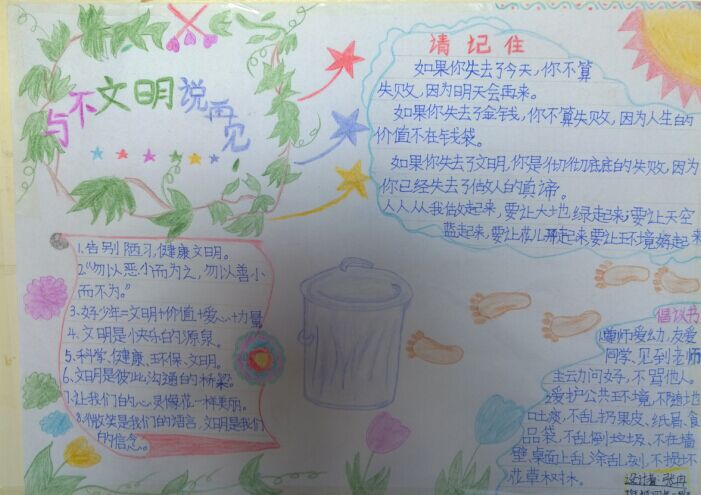 与不文明说再见
请记住
如果你失去了今天，你不算
失败，因为明天会再来。
如果你失去了金钱，你不算失败，因为人生的
价值不在钱袋。
如果你失去了文明，你是彻彻底底的失败，因为
你已经失去了做人的真谛。
人人从我做起来，要让大地绿起来；要让天空
蓝起来，要让花儿开起来要让环境好起来
1.告别陋习，健康文明。
2."勿以恶小而为之，勿以善小
而不为。"
3.好少年=文明+价值+爱心+力量
4.文明是快乐的源泉。
5.科学、健康、环保、文明。
6.文明是彼此沟通的桥梁。
7.让我们的心灵像花一样美丽。
8.微笑是我们的语言，文明是我们
的信念。
倡议书
1尊师爱幼，友爱
同学、见到老师
主动问好，不骂人。
2爱护公共环境，不随地
吐痰，不乱扔果皮、纸屑、食
品袋，不乱倒垃圾、不在墙
壁、桌面上乱涂乱刻，不损坏
花草树木。
设计者：张冉